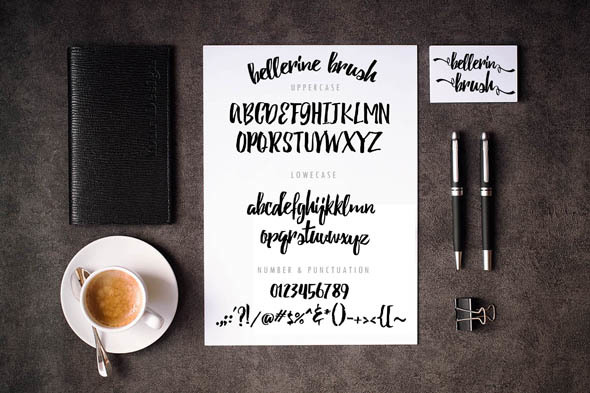 bellerine brush
UPPERCASE
ABCDEFGHIJKLMN
OPQRSTUVWXYZ
LOWECASE
abcdefghijklmn
opqrstuvwxyz
NUMBER & PUNCTUATION
0123456789
.,;:'?!/@#$%^&*()-+><{[~
bellerin
brush